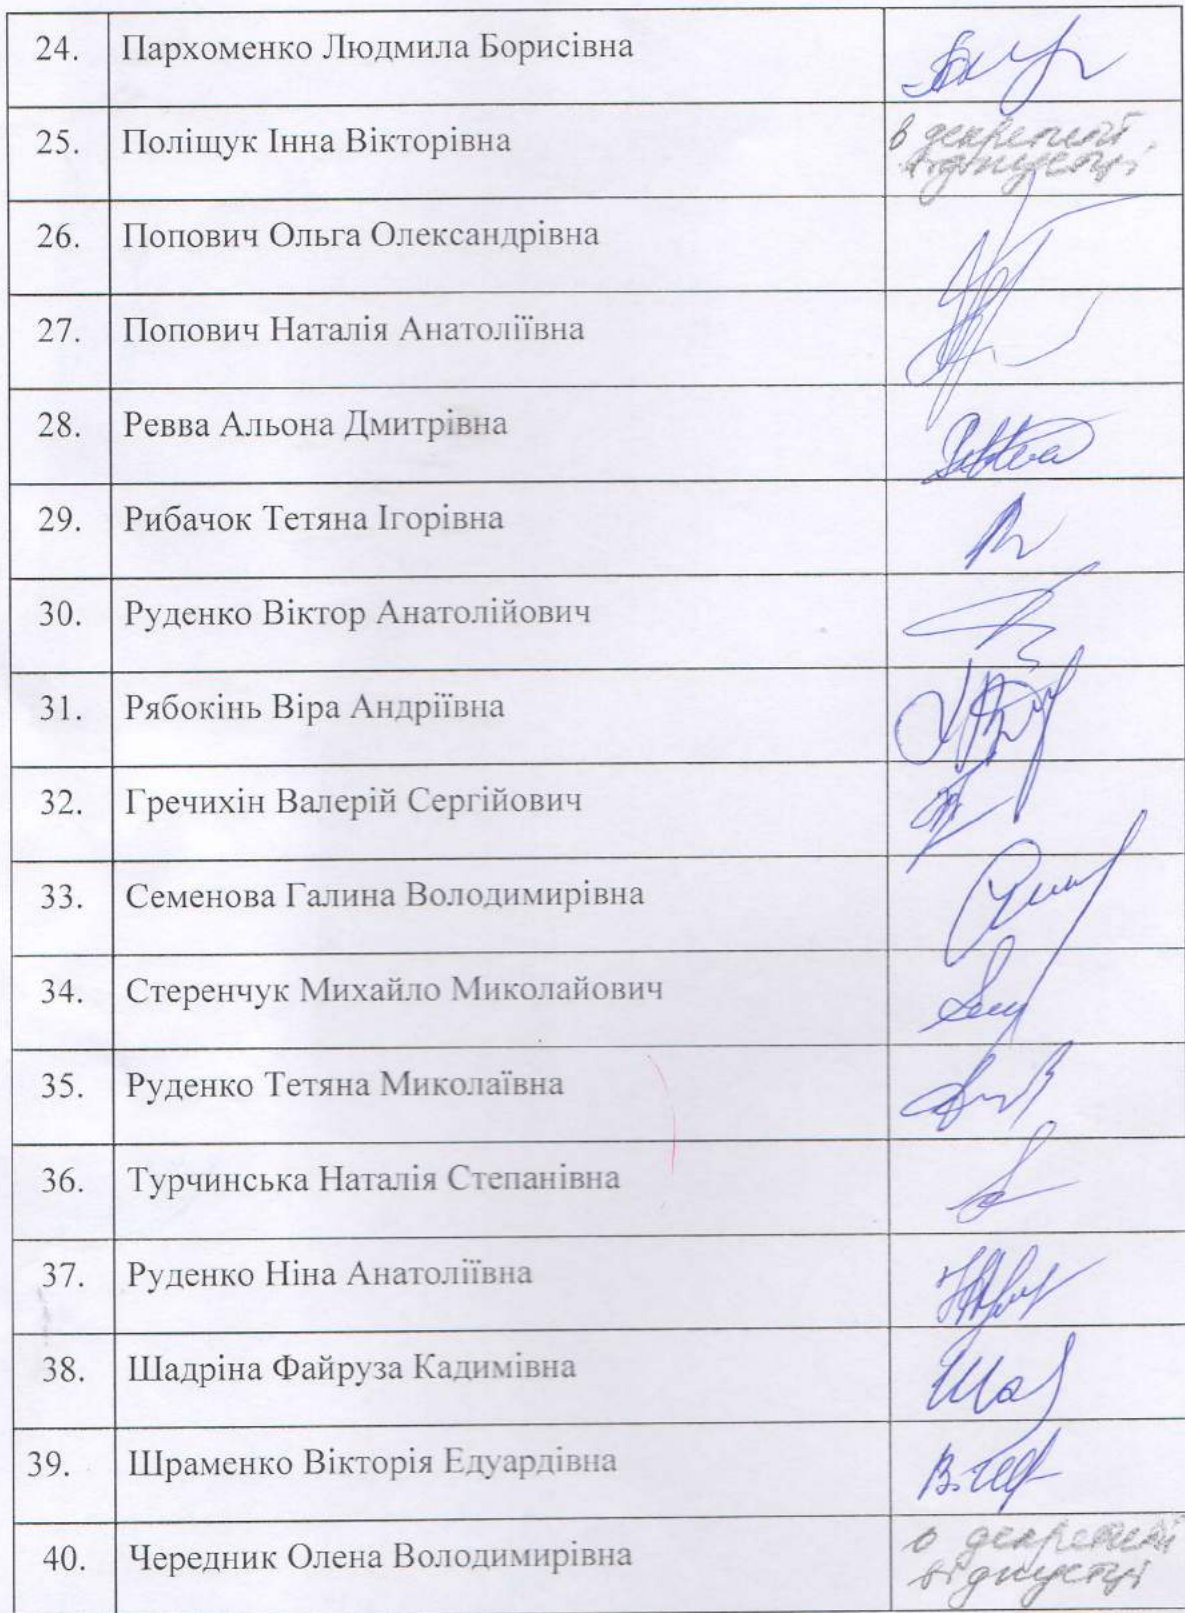 24. Пархоменко Людмила Борисівна
25. Поліщук Інна Вікторівна в декретній
відпустці
26. Попович Ольга Олександрівна
27. Попович Наталія Анатоліївна
28. Ревва Альона Дмитрівна
29. Рибачок Тетяна Ігорівна
30. Руденко Віктор Анатолійович
31. Рябокінь Віра Андріївна
32. Гречихін Валерій Сергійович
33. Семенова Галина Володимирівна
34. Стеренчук Михайло Миколайович
35. Руденко Тетяна Миколаївна
36. Турчинська Наталія Степанівна
37. Руденко Ніна Анатоліївна
38. Шадріна Файруза Кадимівна
39. Шраменко Вікторія Едуардівна
40. Чередник Олена Володимирівна в декретній
відпустці